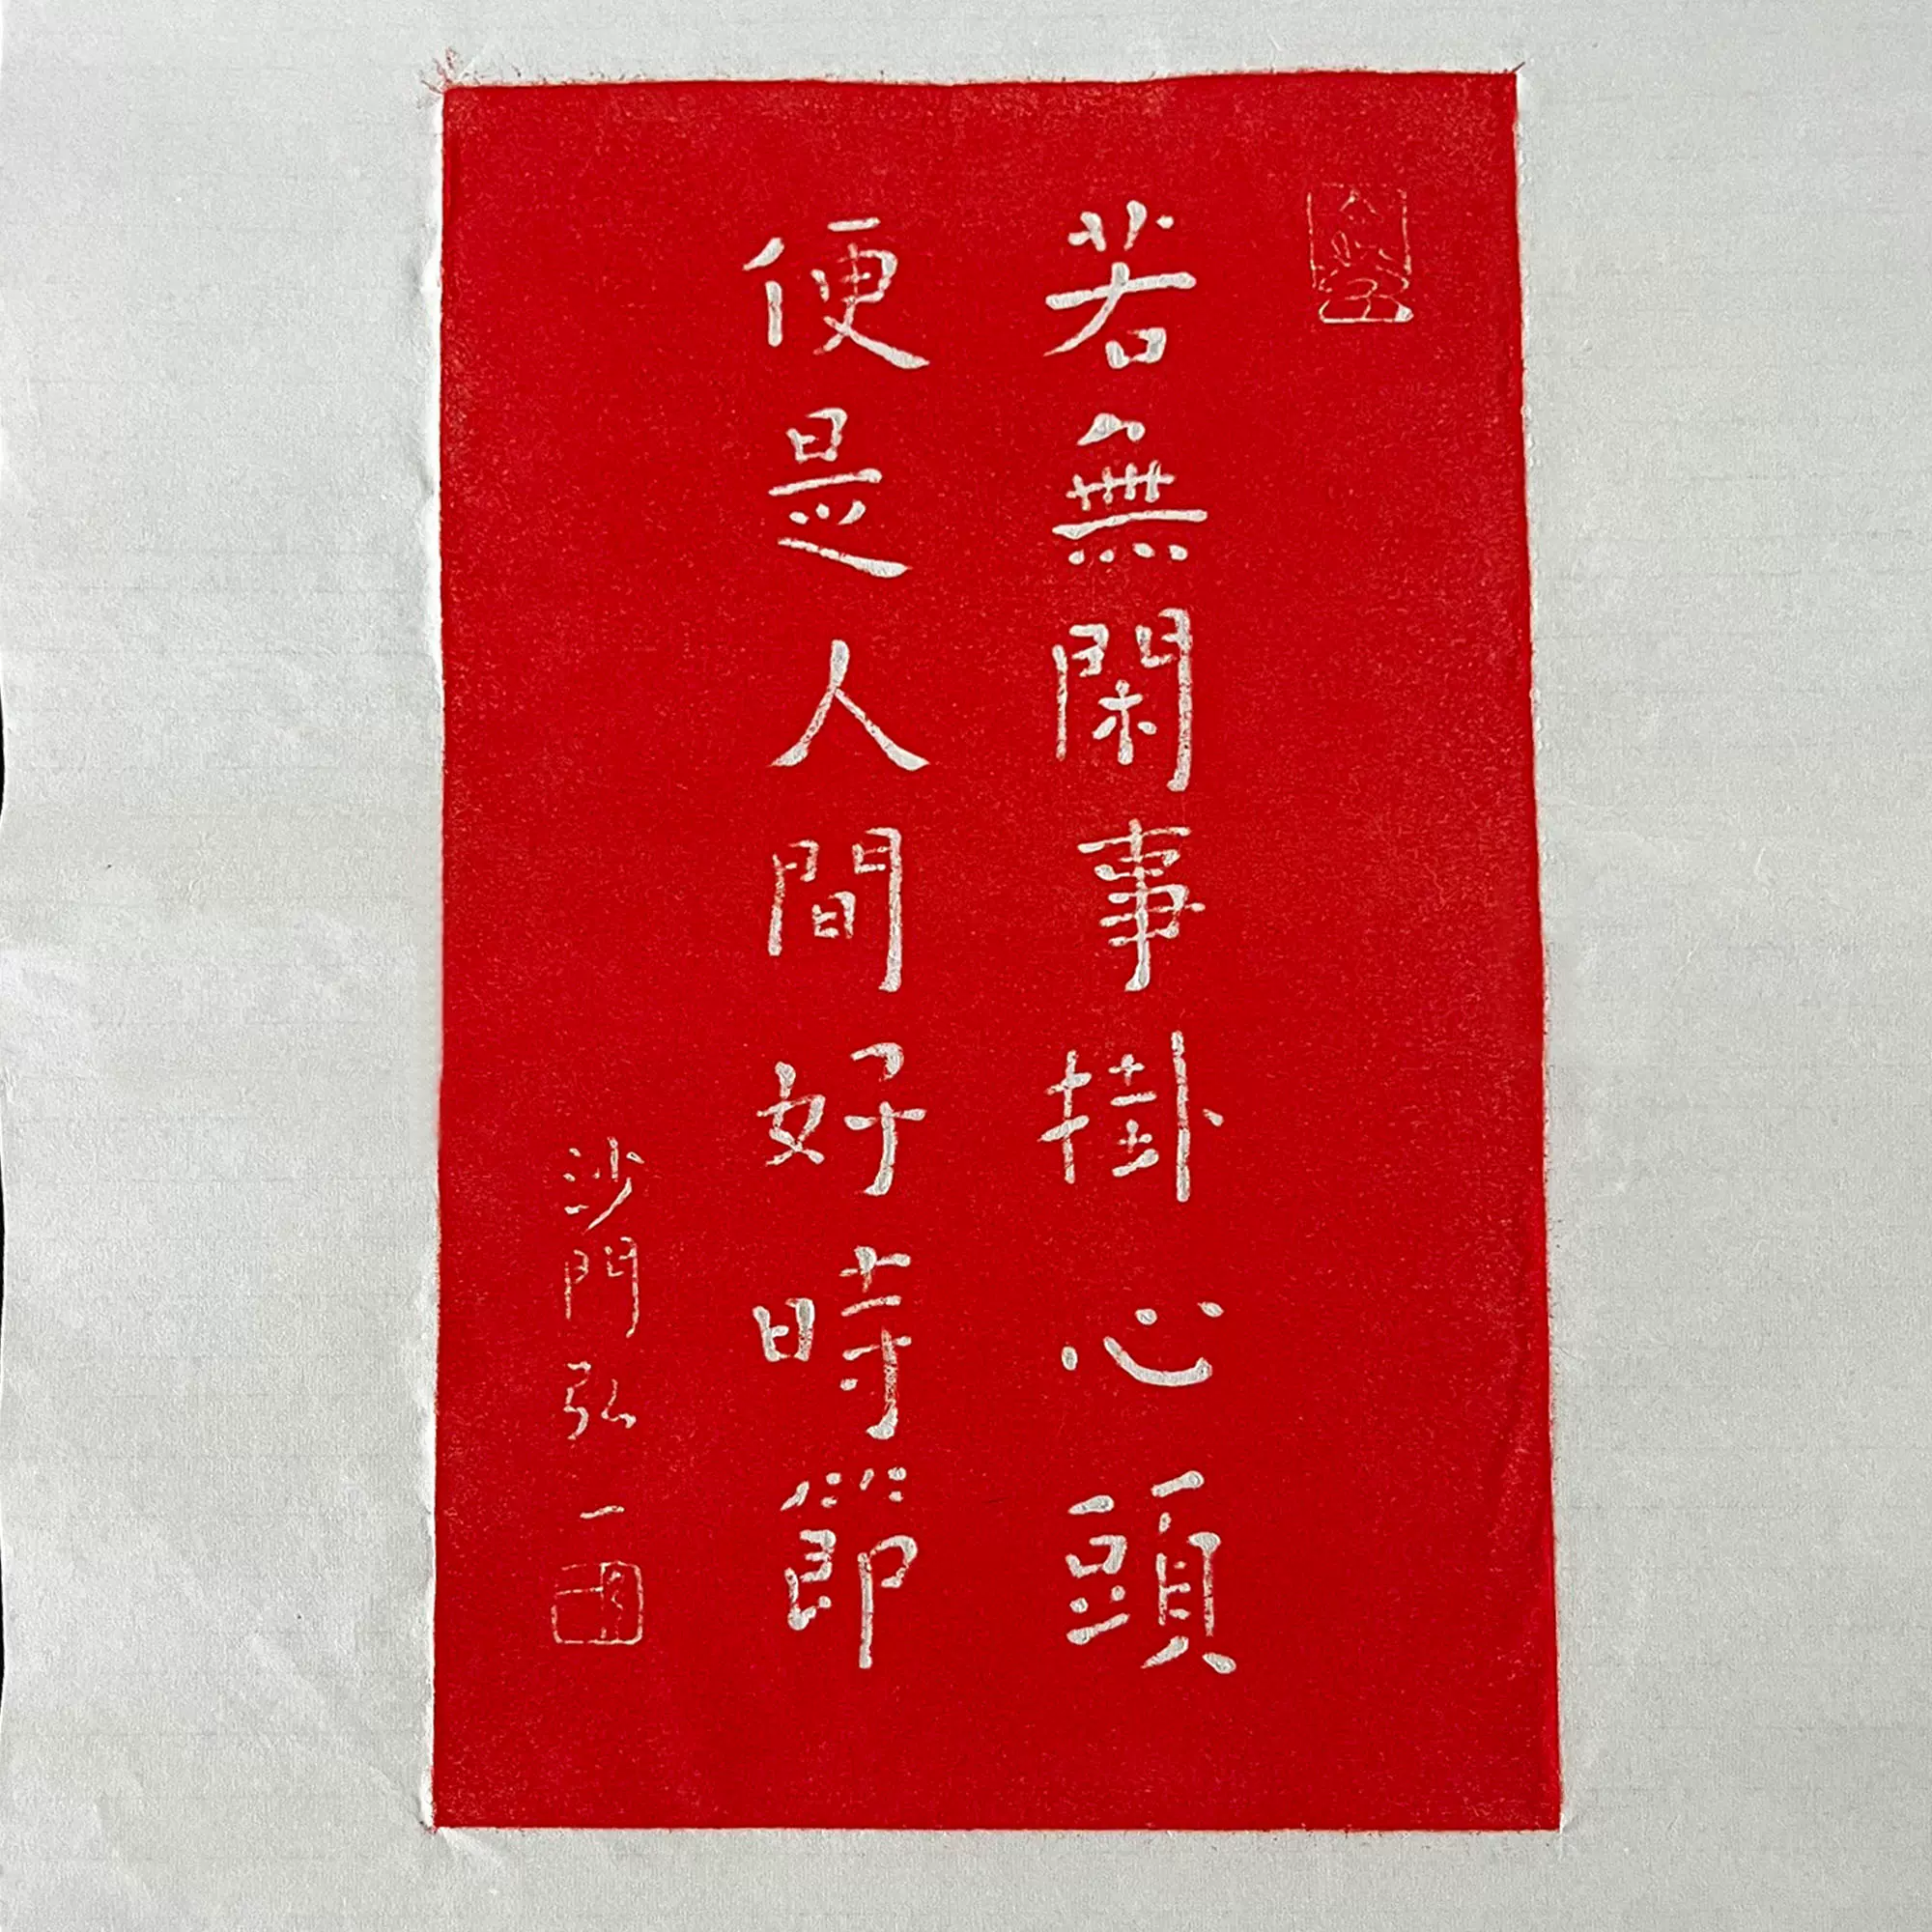 若無閑事掛心頭
便是人間好時節
沙門弘一